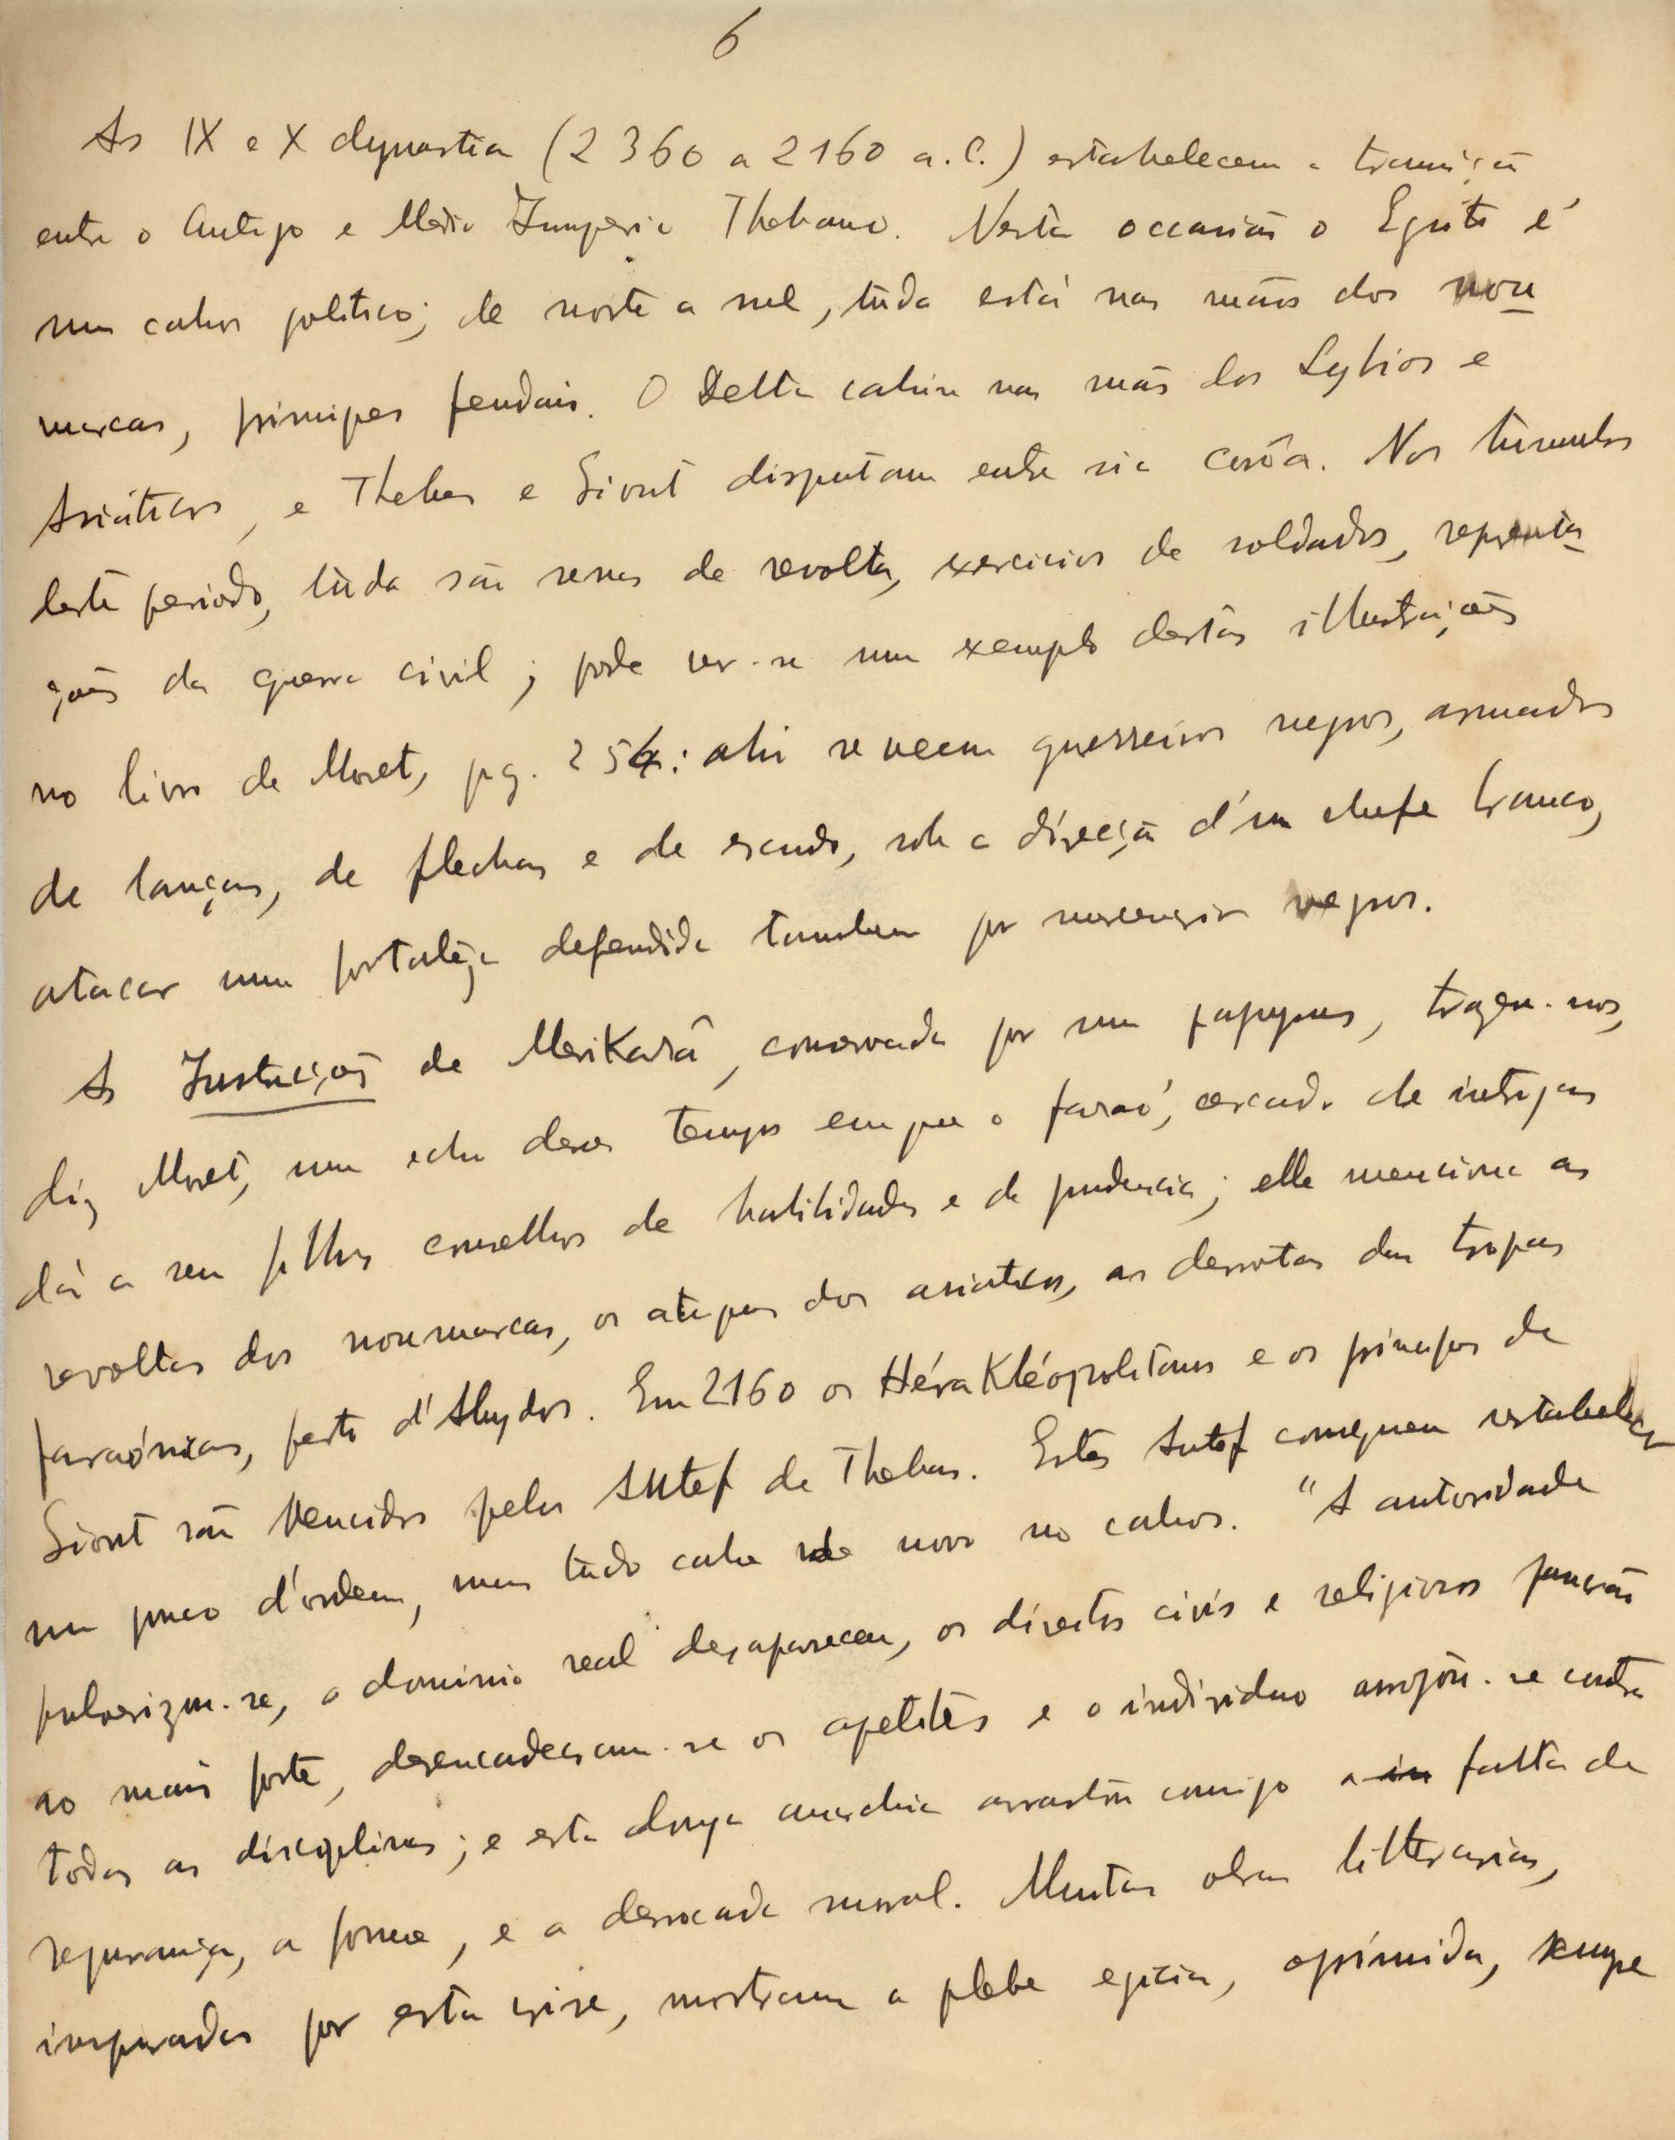 6
As IX e X dynastia (2360 a 2160 a.C.) estabelecem a transição
entre o Antigo e Medio Imperio Thebano. Nesta occasião o Egito é
um cahos politico; de norte a sul, tudo está nas mãos dos nou
marcas, principes feudais. O Delta cahiu nas mãos dos Lybios e
Asiáticos, e Thebas e Siout disputam entre si a corôa. Nos tumulos
deste periodo, tudo são scenas de revolta, exercicios de soldados, represta
ções da guerra civil; pode ver-se um exemplo destas illustrações
no livro de Moret, pg. 254: ahi se veem guerreiros negros, armados
de lanças, de flechas e de escudo, sob a direcção d'um chefe branco,
atacar uma fortaleza defendida tambem por mercenarios negros.
As Instrucções de Merikarâ, conservada por um papyrus, trazem-nos,
diz Moret, um echo desses tempos em que o faraó, cercado de intrigas
dá a seu filho conselhos de habilidades e de prudencia; elle menciona as
revoltas dos noumarcas, os ataques dos asiaticos, as derrotas das tropas
faraónicas, perto d'Abydos. Em 2160 os HéraKléopolitanos e os principes de
Siout são vencidos pelos Antef de Thebas. Estes Antef conseguem restabelecer
um pouco d'ordem, mas tudo cahe de novo no cahos. "A autoridade
pulverizou-se, o dominio real desapareceu, os direitos civis e religiosos passarão
ao mais forte, desencadearam-se os apetites e o individuo arrojou-se contra
todas as disciplinas; e esta longa anarchia arrastou comsigo a in falta de
segurança, a fome, e a derrocada moral. Muitas obras litterarias,
inspiradas por esta crise, mostram a plebe egicia, oprimida, sempre